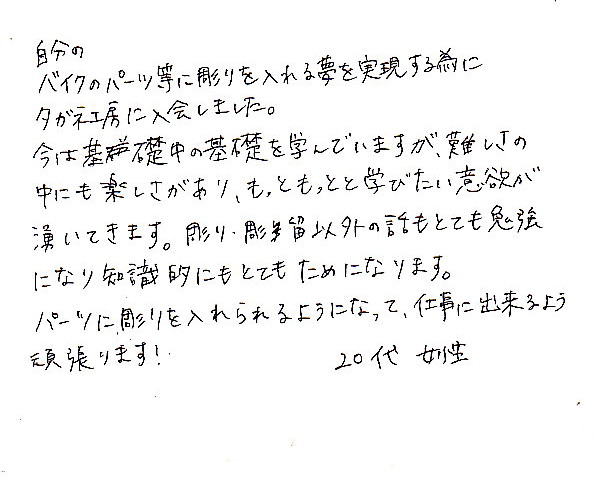 自分の
バイクのパーツ等に彫りを入れる夢を実現する為に
タガネ工房に入会しました。
今は基礎中の基礎を学んでいますが、難しさの
中にも楽しさがあり、もっともっとと学びたい意欲が
湧いてきます。彫り・彫留以外の話もとても勉強
になり知識的にもとてもためになります。
パーツに彫りを入れられるようになって、仕事に出来るよう
頑張ります!
20代 女性